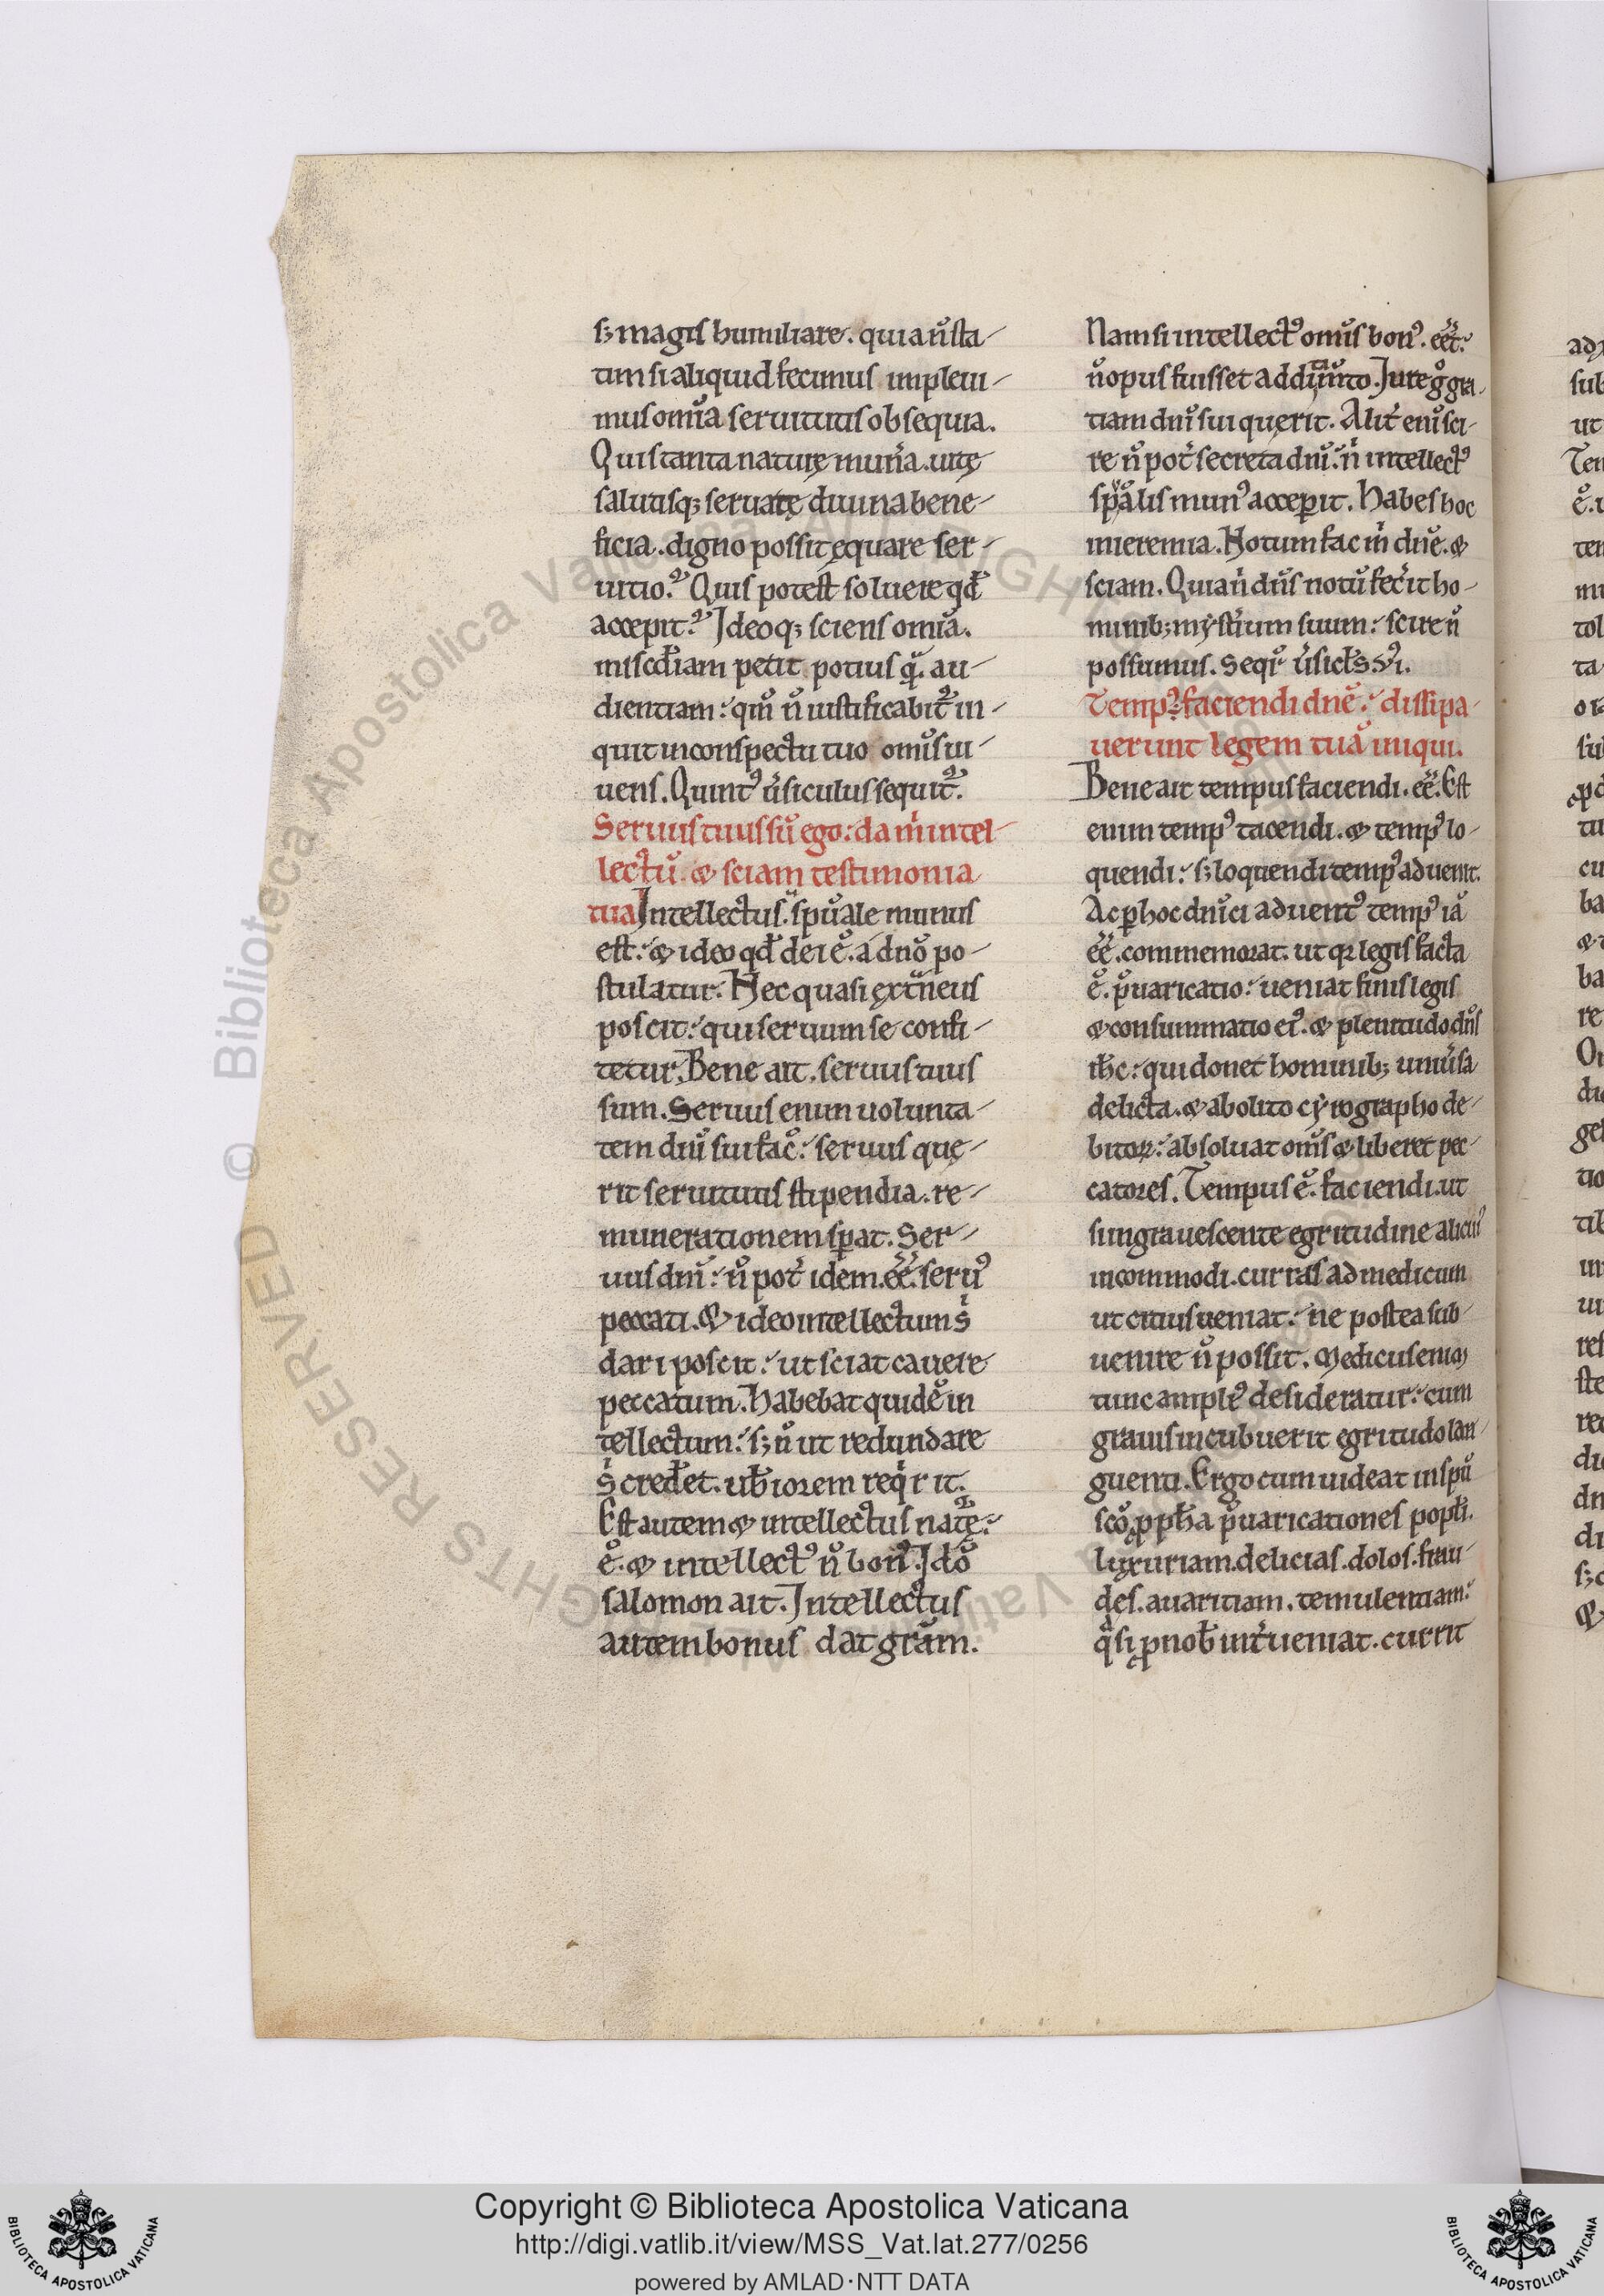 sꝫ magis humiliare. quia n̄ sta-
tim si aliquid fecimus impleui-
mus om̄ia seruitutis obsequia.
Quis tanta naturę mun̄a. uitę
salutisqꝫ seruatę diuina bene-
ficia. digno possit ęquare ser-
uitio? Quis potest soluere qđ
accepit? Ideoqꝫ sciens om̄ia.
misc̄diam petit potius q̄. au-
dientiam: qm̄ n̄ iustificabit᷑ in-
quit in conspectu tuo om̄is ui-
uens. Quintꝰ v̄siculus sequit᷑.
Seruus tuus sū ego: da m̄ intel-
lectū. & sciam testimonia
tua Intellectus. sp̄uale munus
est: & ideo qđ dei ē. a dn̄o po-
stulatur. Hec quasi ext̄neus
poscit: qui seruum se confi-
tetur. Bene ait. seruus tuus
sum. Seruus enim uolunta-
tem dn̄i sui fac̄: seruus quę-
rit seruitutis stipendia. re-
munerationem sꝑat. Ser-
uus dn̄i: n̄ pot̄ idem. ēē. seruꝰ
peccati. & ideo intellectum s̄
dari poscit: ut sciat cauere
peccatum. Habebat quidē in
tellectum: sꝫ n̄ ut redundare
s̄ cred̄et. ub̄iorem req̄rit.
Est autem & intellectus nat̄ę:
ē. & intellectꝰ n̄ bonꝰ. Idō
salomon ait. Intellectus
autem bonus dat gr̄am.
Nam si intellectꝰ om̄is bonꝰ. ēēt:
n̄ opus fuisset additam̄to. Iure ḡ gra-
tiam dn̄i sui querit. Alit̄ enī sci-
re n̄ pot̄ secreta dn̄i: n̄ intellectꝰ
sp̄alis munꝰ acceꝑit. Habes hoc
in ieremia. Notum fac m̄ dn̄e. &
sciam. Quia n̄ dn̄s notū fec̄it ho-
minibꝫ myst̄ium suum: scire n̄
possumus. Seqr̄ v̄sicl̄s. VI.
Tempꝰ faciendi dn̄e: dissipa-
uerunt legem tuā iniqui.
Bene ait tempus faciendi. ēē. Est
enim tempꝰ tacendi. & tempꝰ lo-
quendi: sꝫ loquendi tempꝰ aduenit.
Ac ꝑ hoc dn̄ici aduentꝰ tempꝰ iā
ēē. commemorat. ut qr legis facta
ē. p̄uaricatio: ueniat finis legis
& consummatio eiꝰ. & plenitudo dn̄s
ih̄c: qui donet hominibꝫ uniu̅sa
delicta. & abolito cyrographo de-
bitoꝝ: absoluat om̄s & liberet pec-
catores. Tempus ē. faciendi. ut
si ingrauescente egritudine alicuiꝰ
incommodi. curras ad medicum
ut citius ueniat: ne postea sub-
uenire n̄ possit. Medicus enim
tunc ampliꝰ desideratur: cum
grauis incubuerit egritudo lan-
guenti. Ergo cum uideat in sp̄u
sc̄o ꝓph̄a p̄uaricationes popl̄i.
luxuriam. delicias. dolos. frau-
des. auaritiam. temulentiam:
q̄si ꝓ nob̄ int̄ueniat. currit
Copyright © Biblioteca Apostolica Vaticana
http://digi.vatlib.it/view/MSS_Vat.lat.277/0256
powered by AMLAD·NTT DATA